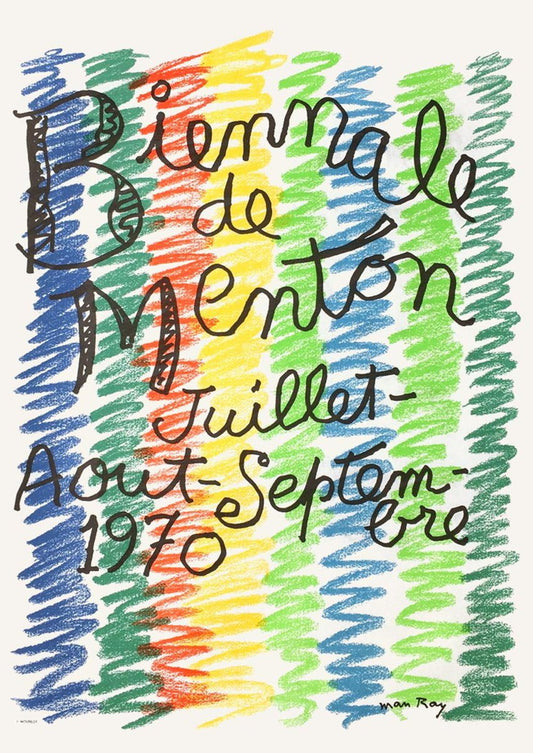 Biennale
de
Menton
Juillet-
Aout-Septem-
bre
1970
man Ray